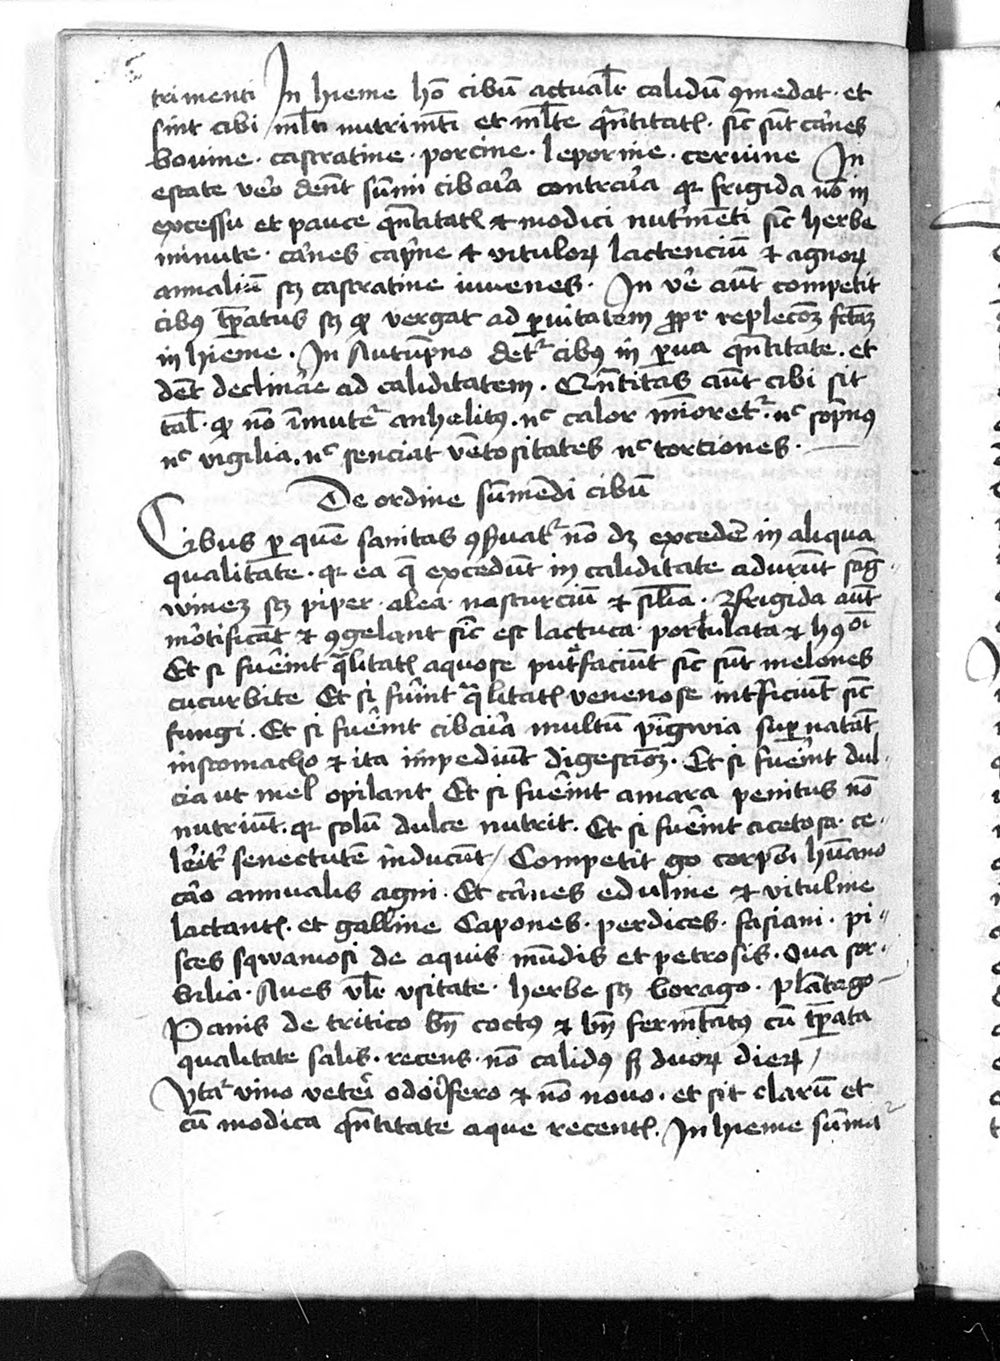 trimenti In hieme hō cibū actualr̄ calidū ꝯmedat · et
sint cibi ml̄ti nutrimēti et ml̄te qn̄titatꝭ · sic̄ sūt carnes
bovine · castratine · porcine · leporine · cervine In
estate vero dent sumi cibaria contraria qꝛ frigida nō in
excessu et pauce qn̄titatꝭ ⁊ modici nutrimēti sic̄ herbe
minute · carnes caprine ⁊ vitulorꝝ lactenciū ⁊ agnorꝝ
annaliū scꝫ castratine iuvenes · In vere aūt competit
cibꝰ tꝑatus scꝫ ꝙ vergat ad ꝑvitatem ꝓpr replecōꝫ fctāꝫ
in hieme · In Autūpno detr cibꝰ in ꝑva qn̄titate · et
dēt declinare ad caliditatem · Qn̄titas aūt cibi sit
talꝭ · ꝙ nō īmutet anhelitꝰ · nc calor minoretr · nc sopnꝰ
nc vigilia · nc senciat vētositates nc torciones ·
De ordine sumēdi cibū
Cibus ꝑ quē sanitas ꝯẜvatr nō dꝫ excedere in aliqua
qualitate · qꝛ ea q̄ excedūt in caliditate adurūt sāg-
wineꝫ scꝫ piper · alea · nasturciū ⁊ sīlia · Frigida aūt
mortificāt ⁊ ꝯgelant sic̄ est lactuca · portulata ⁊ hꝰoi
Et si fuerint qlitatꝭ aquose putrfaciūt sic̄ sūt melones
cucurbite Et si fuerint qlitatꝭ venenose intrficiūt sic̄
fungi · Et si fuerint cibaria multū pīgwia suꝑnatāt
in stomacho ⁊ ita impediūt digestiōꝫ · Et si fuerint dul-
cia ut mel opilant Et si fuerint amara penitus nō
nutriūt · qꝛ solū dulce nutrit · Et si fuerint acetosa · ce-
leritr senectutē inducūt / Competit go corpori hūano
caro annualis agni · Et carnes eduline ⁊ vituline
lactantꝭ · et galline Capones · perdices · fasiani · pi-
sces sqwamosi de aquis mūdis et petrosis · Ova sor-
bilia · Aves vlr̄ usitate · herbe scꝫ borago · plātago
Panis de tritico bn̄ coctꝰ ⁊ bn̄ fermētatꝰ cū tꝑata
qualitate salis · recens · nō calidꝰ sꝫ duorꝝ dierꝝ /
Vtatr vino veteri odorifero ⁊ nō novo · et sit clarū et
cū modica qn̄titate aque recentꝭ · In hieme sūma